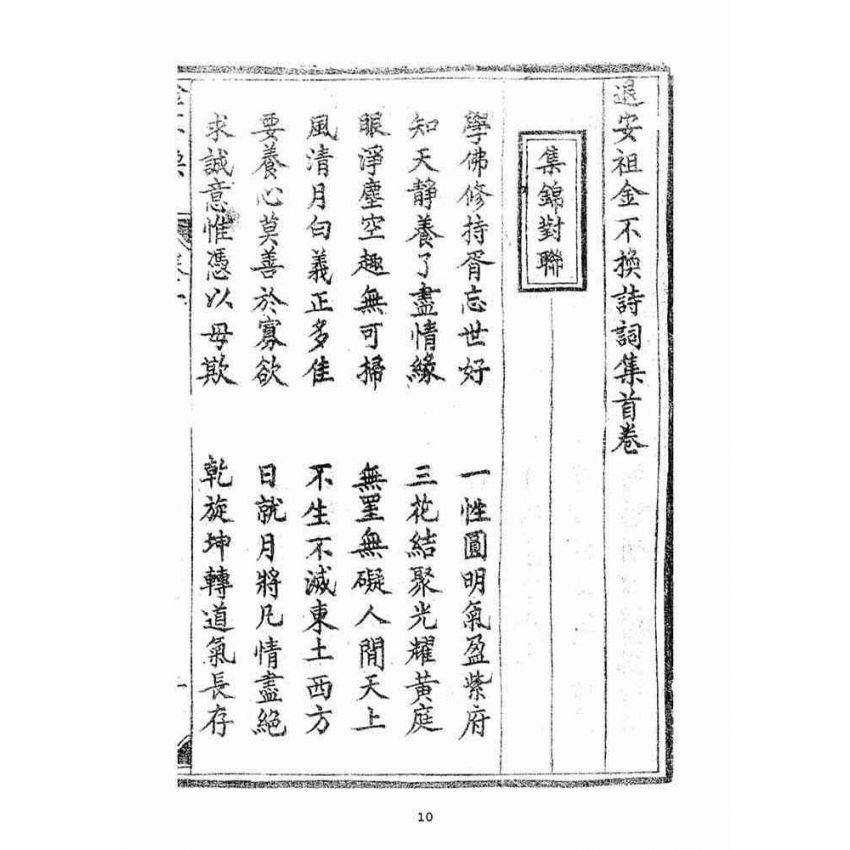 退安祖金不換詩詞集首卷
集錦對聯
學佛修持胥忘世好 一性圓明氣盈紫府
知天靜養了盡情緣 三花結聚光耀黃庭
眼淨塵空趣無可掃 無罣無礙人間天上
風清月白義正多佳 不生不滅東土西方
要養心莫善於寡欲 日就月將凡情盡絕
求誠意惟憑以毋欺 乾旋坤轉道氣長存
10